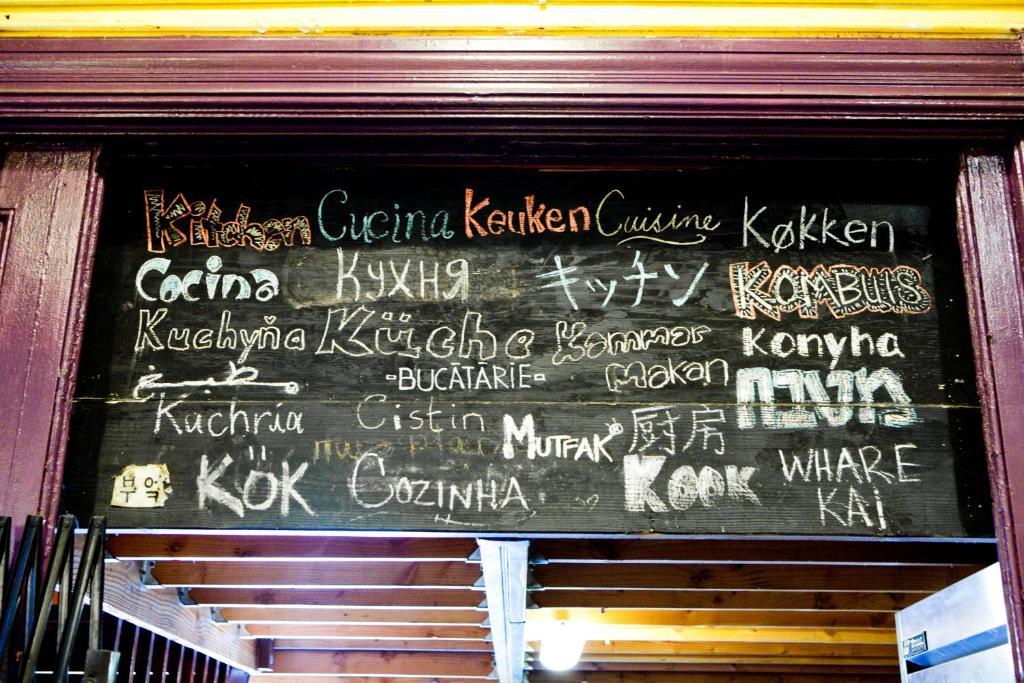 Kitchen Cucina Keuken Cuisine Køkken
Cocina Кухня キッチン Kombuis
Kuchyňa Küche Kammar Makan Konyha
مطبخ -BUCĂTĂRIE- מטבח
Kuchnia Cistin MUTFAK 厨房
부엌 KÖK COZINHA Kook WHARE KAI